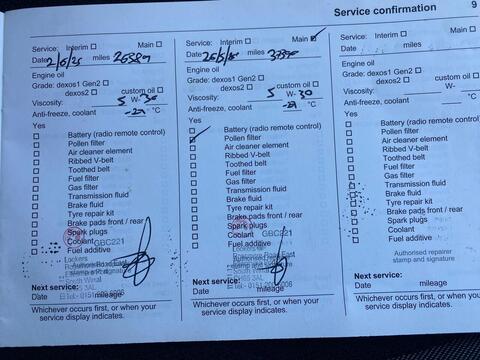 Service confirmation 9
Service: Interim Main
Date miles
Engine oil
Grade: dexos1 Gen2
dexos2 custom oil
Viscosity: 5 W- 30
Anti-freeze, coolant °C
Yes
Battery (radio remote control)
Pollen filter
Air cleaner element
Ribbed V-belt
Toothed belt
Fuel filter
Gas filter
Transmission fluid
Brake fluid
Tyre repair kit
Brake pads front / rear
Spark plugs
Coolant GBC221
Fuel additive
Next service:
Date mileage
Whichever occurs first, or when your
service display indicates.
Service: Interim Main
Date miles
Engine oil
Grade: dexos1 Gen2
dexos2 custom oil
Viscosity: 5 W- 30
Anti-freeze, coolant °C
Yes
Battery (radio remote control)
Pollen filter
Air cleaner element
Ribbed V-belt
Toothed belt
Fuel filter
Gas filter
Transmission fluid
Brake fluid
Tyre repair kit
Brake pads front / rear
Spark plugs
Coolant GBC221
Fuel additive
Next service:
Date mileage
Whichever occurs first, or when your
service display indicates.
Service: Interim
Date miles
Engine oil
Grade: dexos1 Gen2
dexos2 custom oil
Viscosity: W-
Anti-freeze, coolant °C
Yes
Battery (radio remote control)
Pollen filter
Air cleaner element
Ribbed V-belt
Toothed belt
Fuel filter
Gas filter
Transmission fluid
Brake fluid
Tyre repair kit
Brake pads front / rear
Spark plugs
Coolant
Fuel additive
Authorised repairer
stamp and signature
Next service:
Date mileage
Whichever occurs first, or when your
service display indicates.